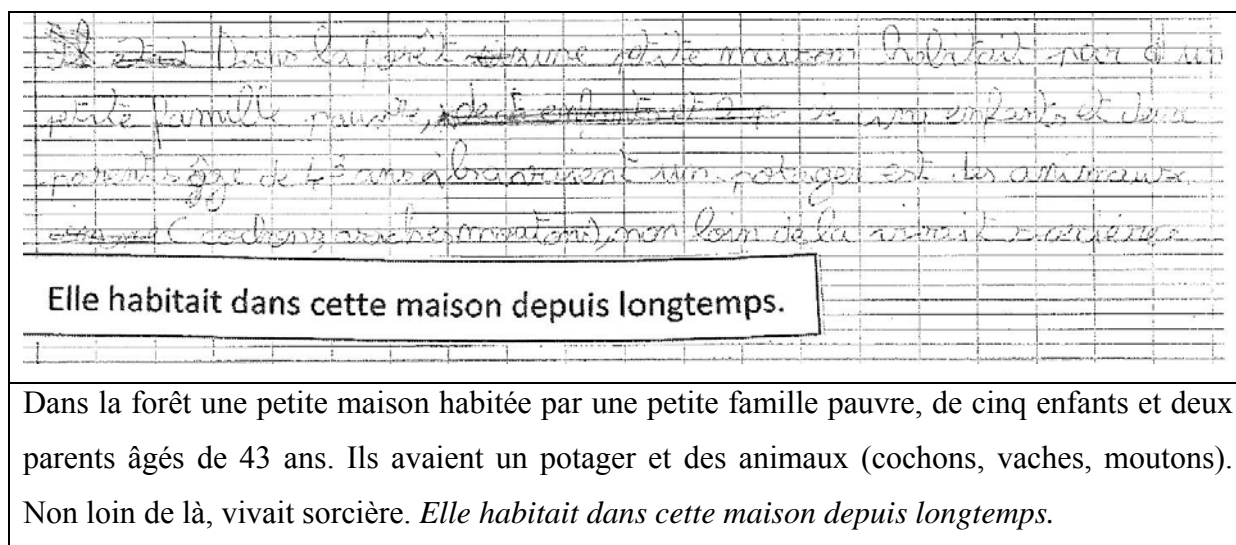 Dans la forêt une ptite maison habitait par
ptite famille pauvre, de cinq enfants et deux
parents âgé de 43 ans un potager est des animaux
(cochons, vaches, moutons), non loin de la vivait sorcière
Elle habitait dans cette maison depuis longtemps.
Dans la forêt une petite maison habitée par une petite famille pauvre, de cinq enfants et deux
parents âgés de 43 ans. Ils avaient un potager et des animaux (cochons, vaches, moutons).
Non loin de là, vivait sorcière. Elle habitait dans cette maison depuis longtemps.